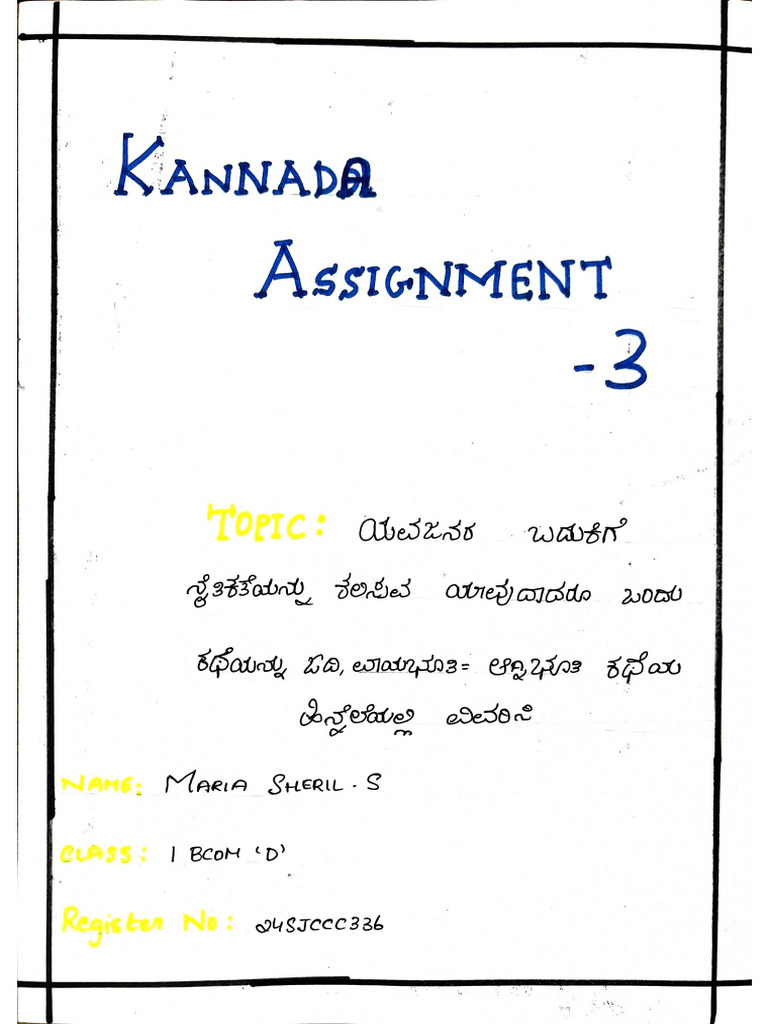 KANNADA
ASSIGNMENT
-3
TOPIC: ಯುವಜನರ ಬದುಕಿಗೆ
ನೈತಿಕತೆಯನ್ನು ಕಲಿಸುವ ಯಾವುದಾದರೂ ಒಂದು
ಕಥೆಯನ್ನು ಓದಿ, ವಾಯುಭೂತಿ = ಅಗ್ನಿಭೂತಿ ಕಥೆಯ
ಹಿನ್ನೆಲೆಯಲ್ಲಿ ವಿವರಿಸಿ
NAME: MARIA SHERIL . S
CLASS: I BCOM 'D'
Register No: 24SJCCC336